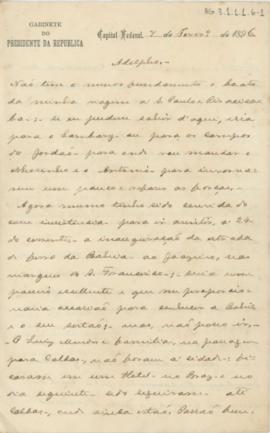 GABINETE
DO
PRESIDENTE DA REPUBLICA
Capital Federal, 7 de Fever.º de 1896
Adolpho,
Não tem o menor fundamento o boato
da minha viagem a S. Paulo e Piracicaba
bas: se eu pudesse sahir d'aqui, iria
para o Lambary ou para os campos
do Jordão para onde vou mandar o
e Antonio para
sem um pouco e as forças.
Agora mesmo tenho sido convidado
com insistencia para ir assistir, a 24
do corrente, a inauguração da estrada
de ferro da Bahia ao Joazeiro, nas
margens do S. Francisco; seria um
passeio excellente e que me proporcio-
naria occasião para conhecer a Bahia
e o seu sertão; mas, não posso ir.
O Luiz e familia, na passagem
para Caldas, não foram á cidade: fi-
caram em um Hotel no Braz e no
dia seguinte seguiram até
Caldas, onde ainda estão. Passão bem.